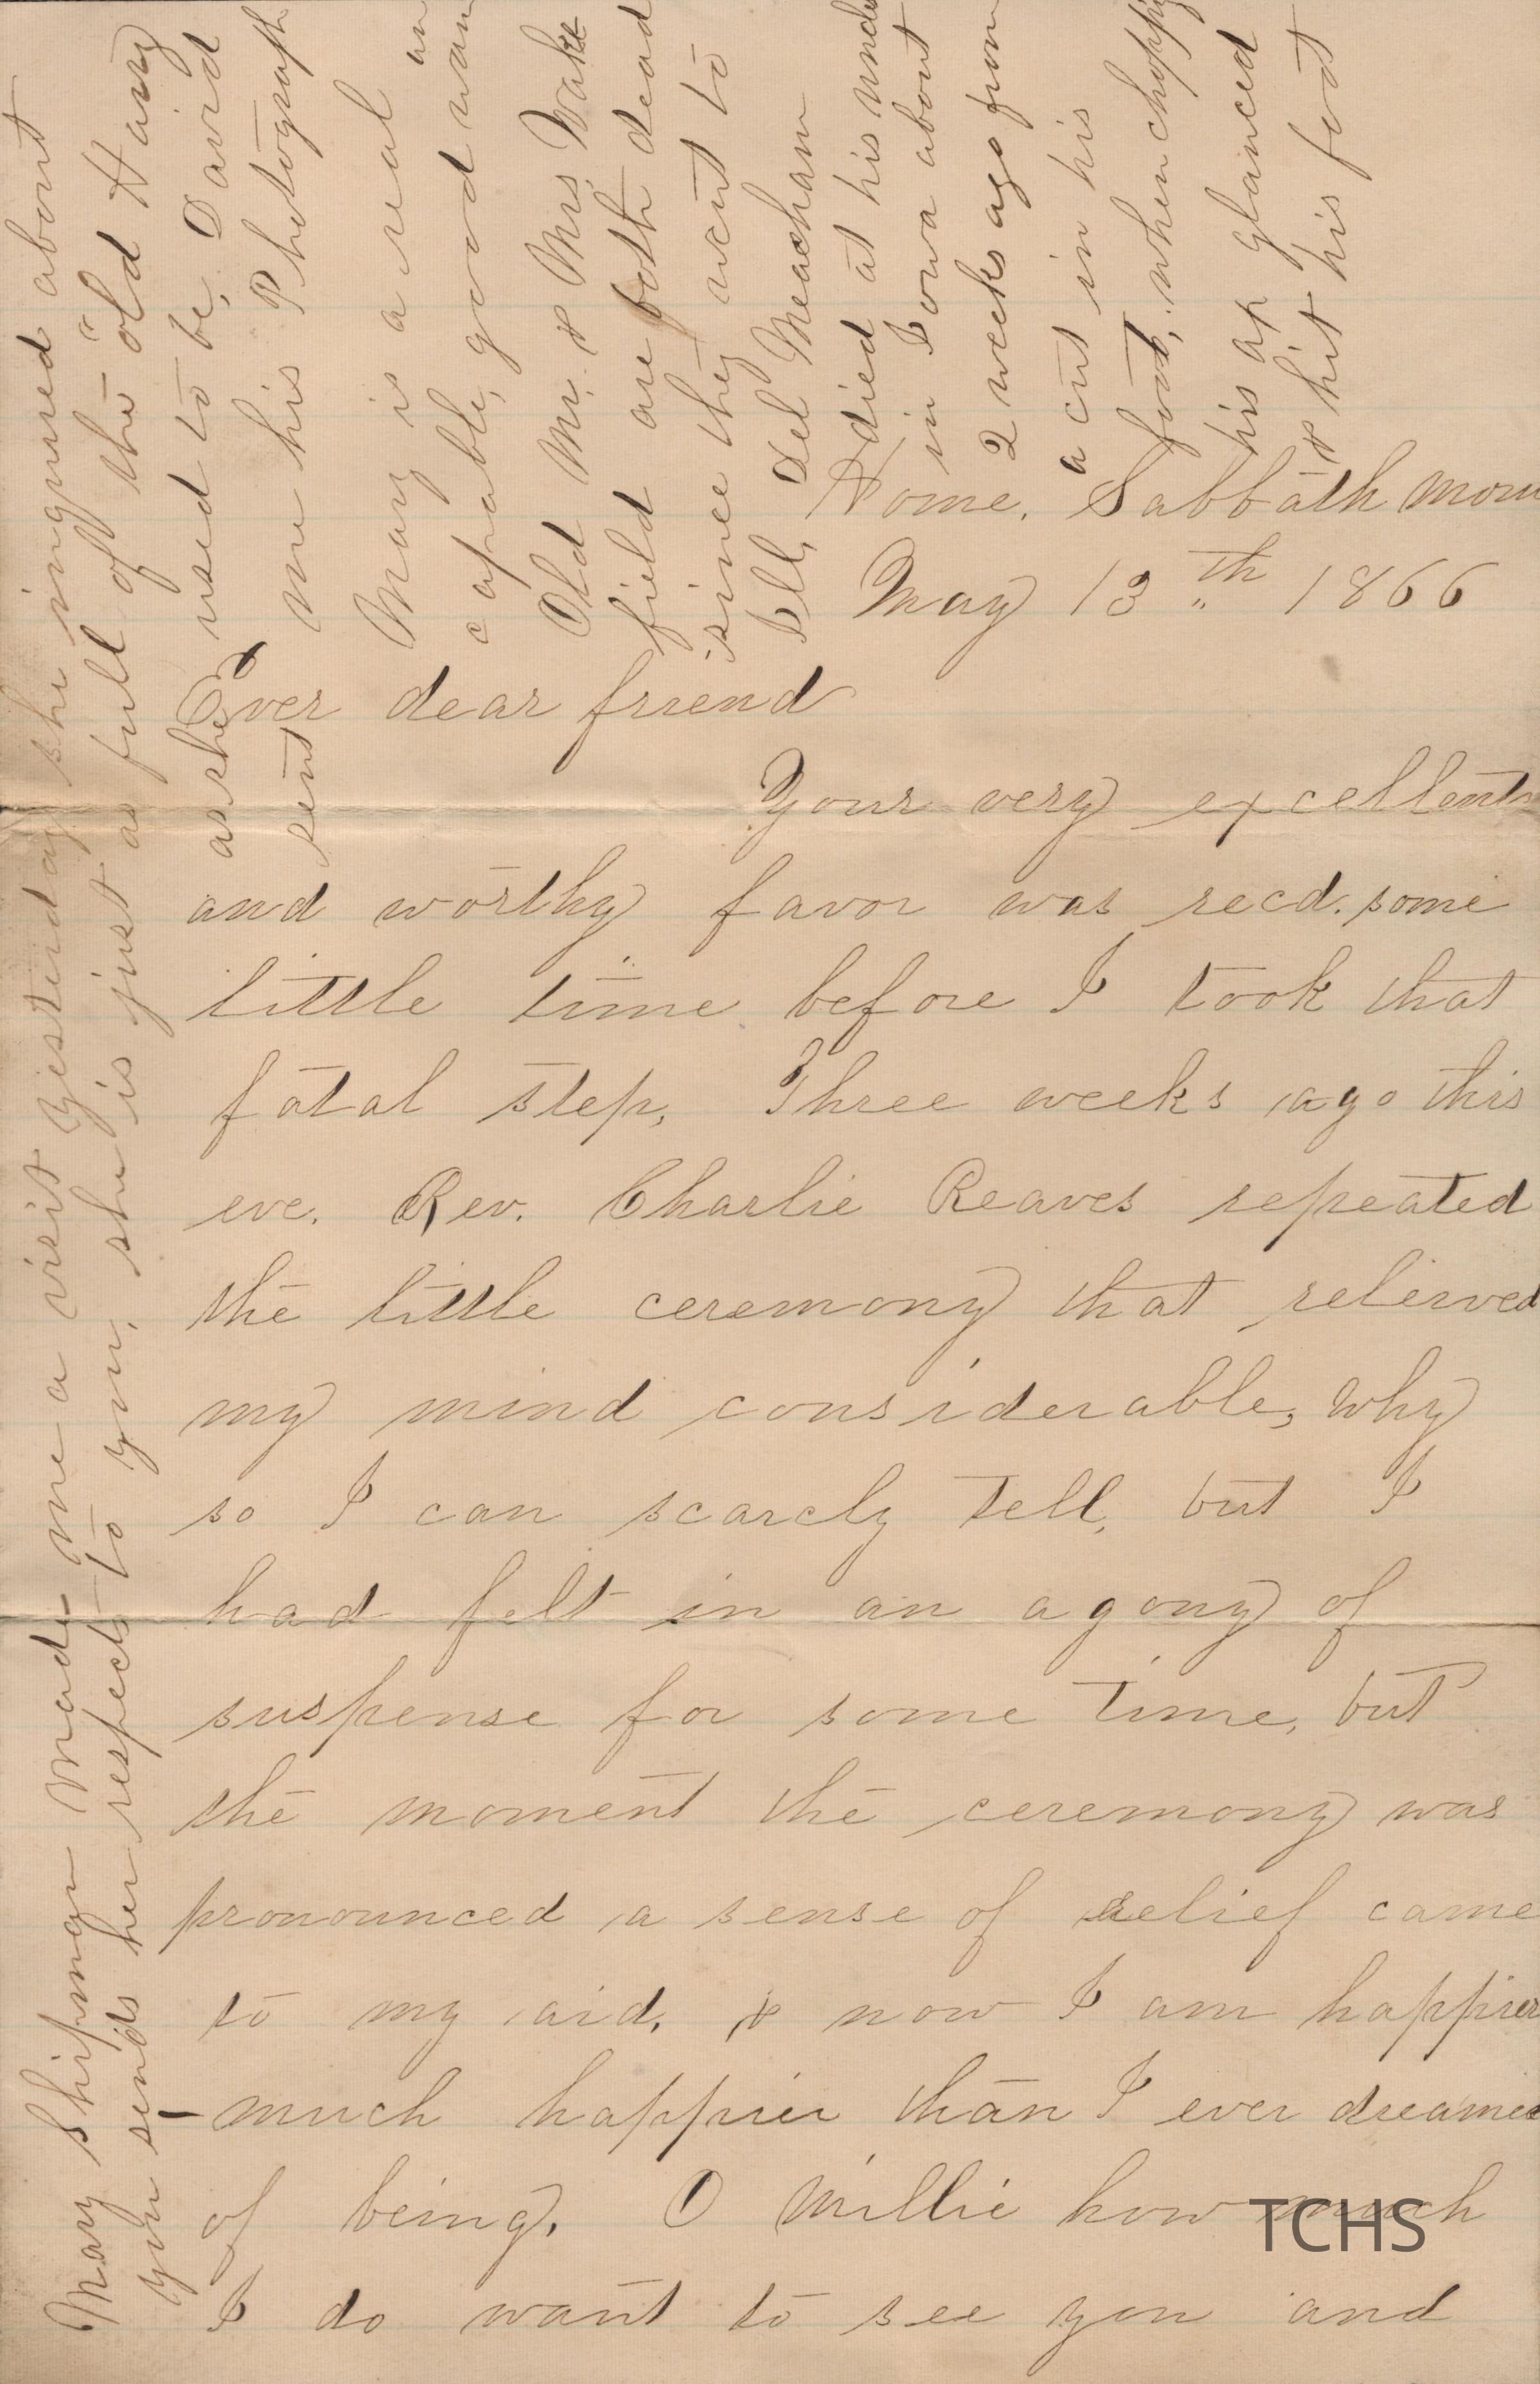 Home. Sabbath morn
May 13th 1866
Ever dear friend
Your very excellent
and worthy favor was recd. some
little time before I took that
fatal step, Three weeks ago this
eve. Rev. Charlie Reaves repeated
the little ceremony that releived
my mind considerable, why
so I can scarcly tell, but I
had felt in an agony of
suspense for some time, but
the moment the ceremony was
pronounced a sense of relief came
to my aid, & now I am happier
- much happier than I ever dreamed
of being. O Millie how much
I do want to see you and
Mary Shipman made me a visit yesterday she inquired about
you sends her respects to you, she is just as full of the old Harry
as she used to be, David
sent me his Photograph
Mary is a real
capable, good
Old Mr. & Mrs. Wake
field are both dead
since they went to
Ill, Del Meacham
died at his
in Iowa about
2 weeks ago from
a cut in his
foot, when
his ax glanced
& hit his foot
TCHS